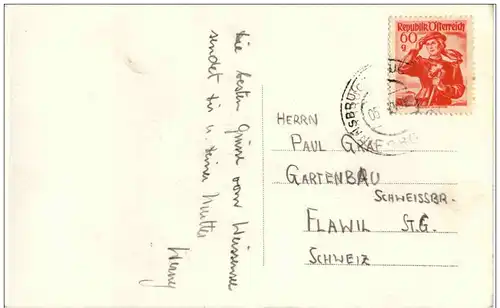 Die besten Grüsse vom Weissensee
sendet dir u. deiner Mutter
Republik Österreich
60
g
HERRN
PAUL GRAF
GARTENBAU
SCHWEISSBR.
FLAWIL ST.G.
SCHWEIZ